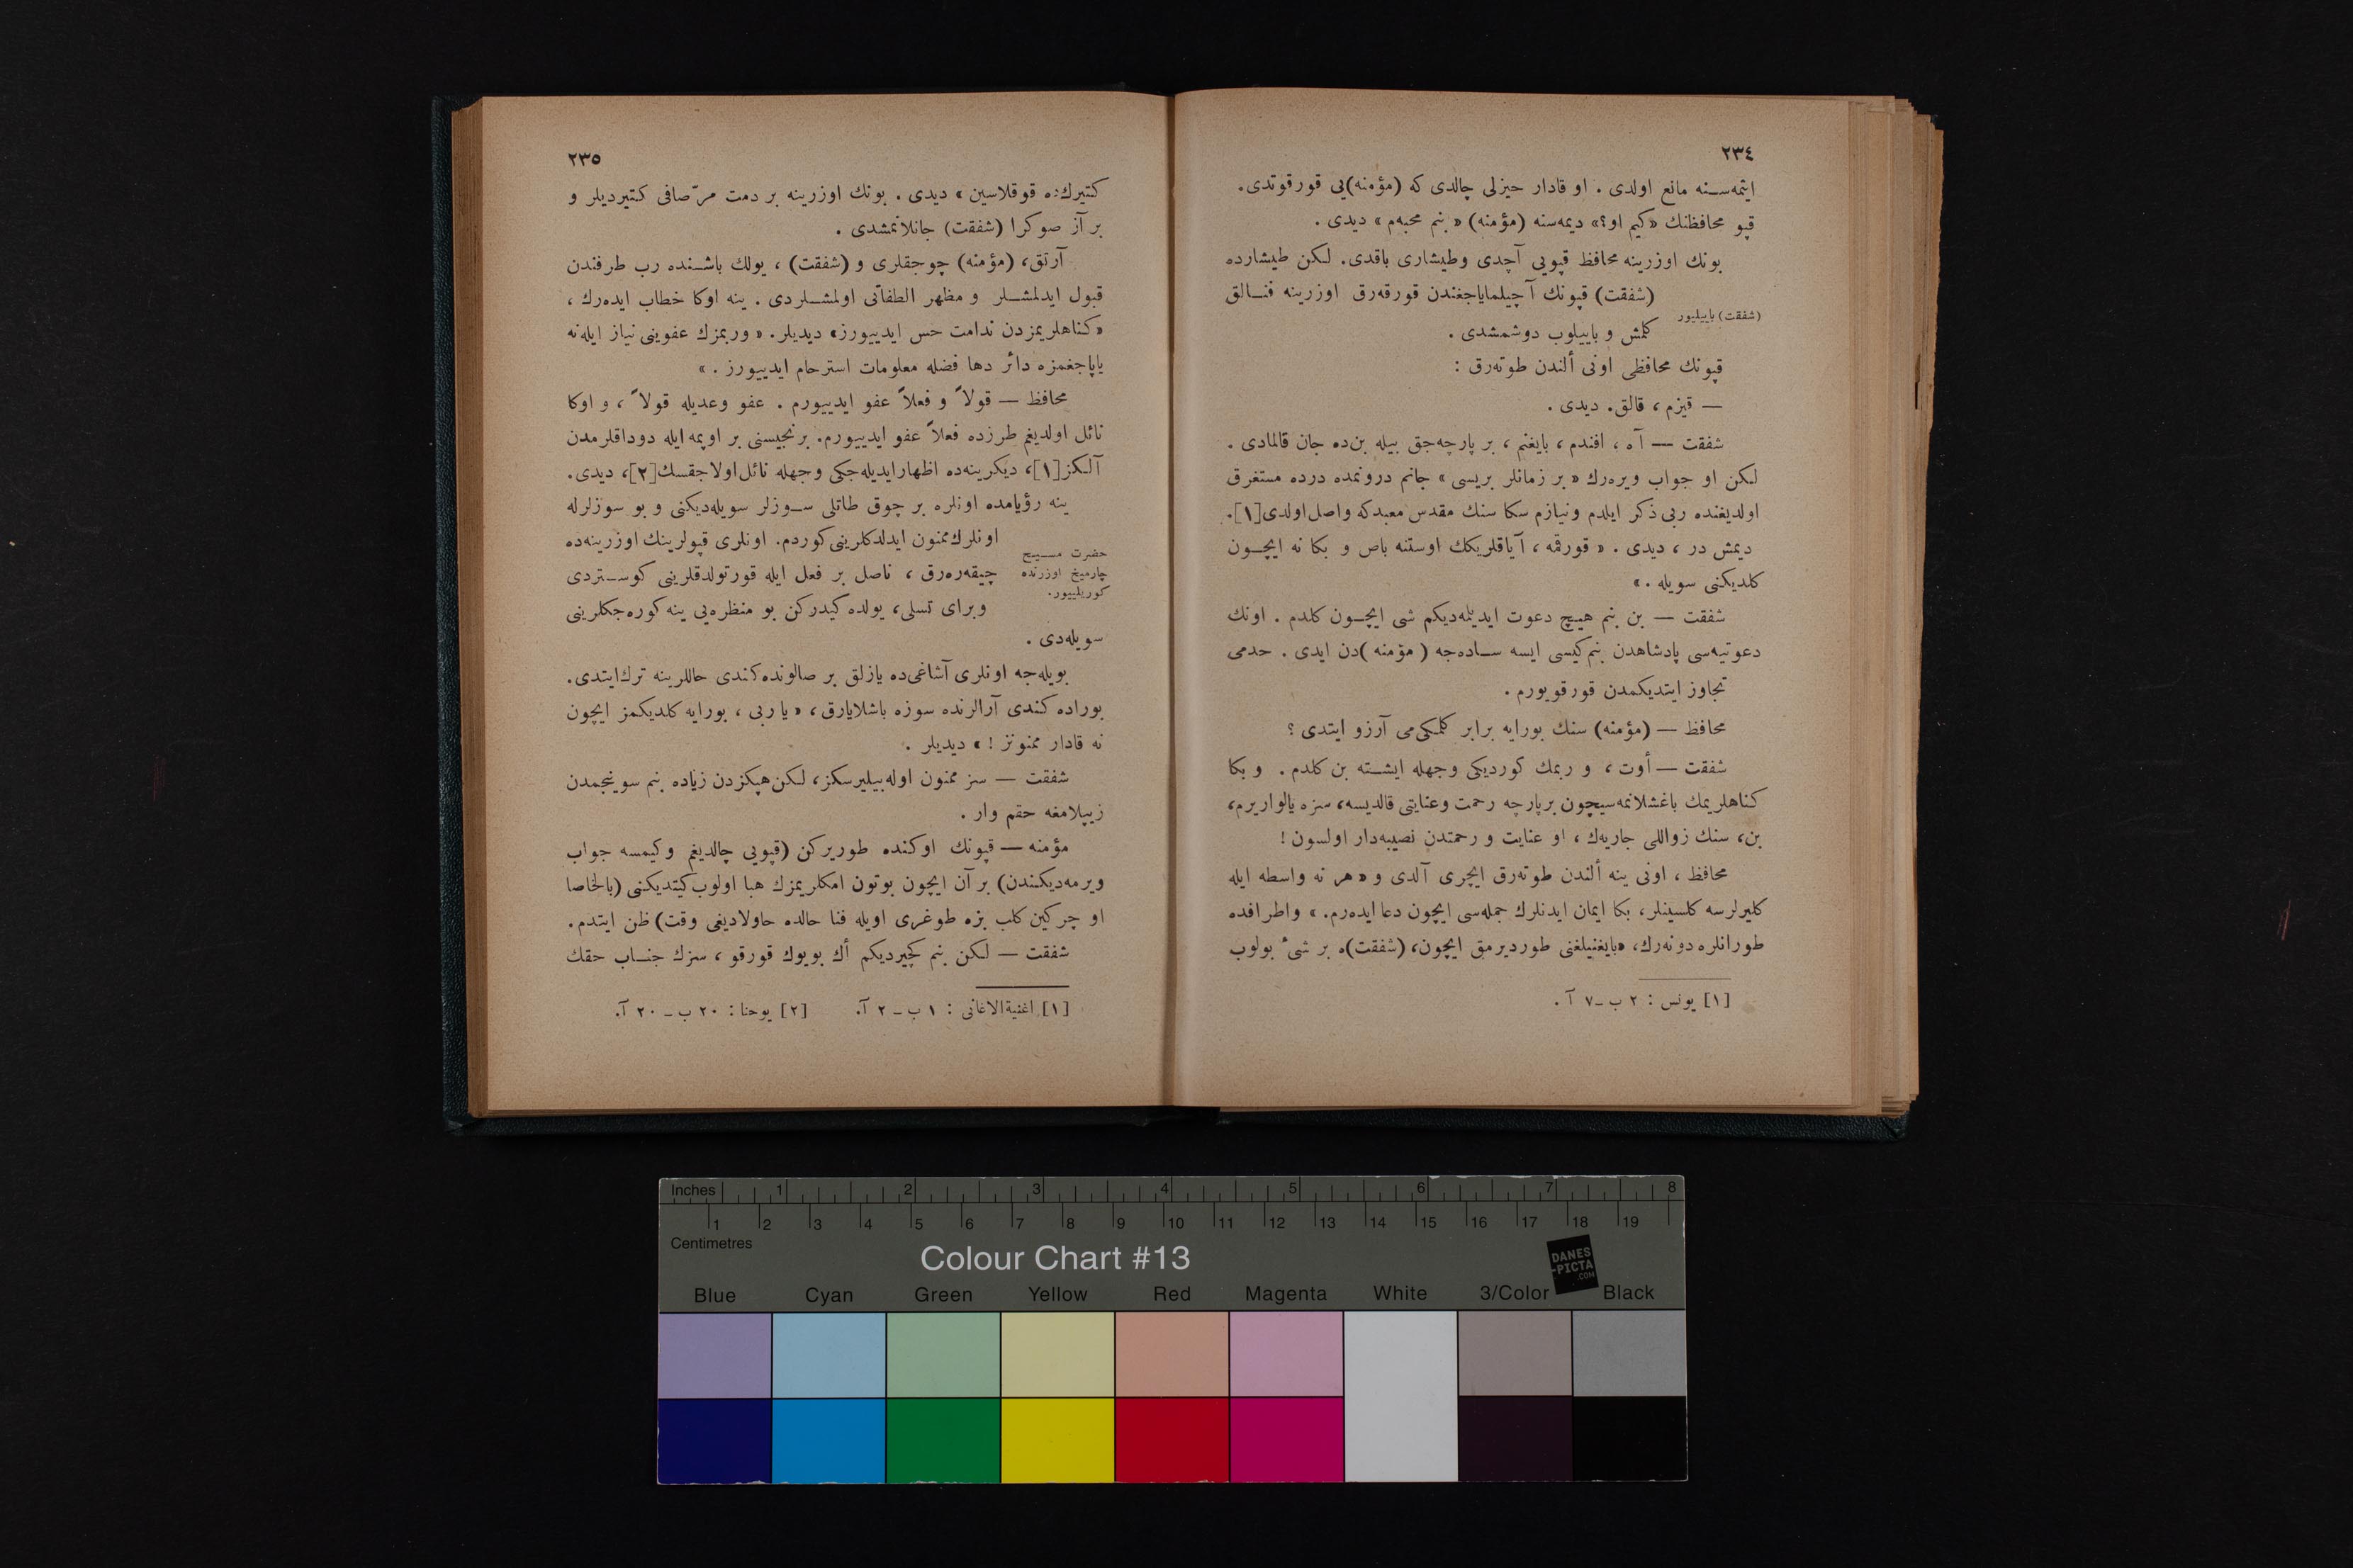 ٢٣٤
ايتمه‌سنه مانع اولدی . او قادار حيزلی چالدی كه (مؤمنه)يی قورقوتدی.
قپو محافظنك «كيم او؟» ديمه‌سنه (مؤمنه) « بنم محبه‌م » ديدی .
بونك اوزرينه محافظ قپویی آچدی وطيشاری باقدی. لكن طيشارده
(شفقت) قپونك آچيلماياجغندن قورقه‌رق اوزرينه فنالق
(شفقت) باييلييور
كلمش و باييلوب دوشمشدی .
قپونك محافظی اونی ألندن طوته‌رق :
— قيزم ، قالق. ديدی .
شفقت — آه ، افندم ، بايغنم ، بر پارچه‌جق بيله بن‌ده جان قالمادی .
لكن او جواب ويره‌رك « بر زمانلر بريسی » جانم درونمده درده مستغرق
اولديغنده ربی ذكر ايلدم ونيازم سكا سنك مقدس معبدكه واصل اولدی[١].
ديمش در ، ديدی . « قورقمه ، آياقلريكك اوستنه باص و بكا نه ايچون
كلديكنی سويله . »
شفقت — بن بنم هيچ دعوت ايديلمه‌ديكم شی ايچون كلدم . اونك
دعوتيه‌سی پادشاهدن بنم‌كيسی ايسه ساده‌جه ( مؤمنه )دن ايدی . حدمی
تجاوز ايتديكمدن قورقويورم .
محافظ — (مؤمنه) سنك بورايه برابر كلمكی‌می آرزو ايتدی ؟
شفقت — أوت ، و ربمك كورديكی وجهله ايشته بن كلدم . و بكا
كناهلريمك باغشلانمه‌سيچون برپارچه رحمت وعنايتی قالديسه، سزه يالواريرم،
بن، سنك زواللی جاريه‌ك ، او عنايت و رحمتدن نصيبه‌دار اولسون !
محافظ ، اونی ينه ألندن طوته‌رق ايچری آلدی و « هر نه واسطه ايله
كليرلرسه كلسينلر، بكا ايمان ايدنلرك جمله‌سی ايچون دعا ايده‌رم. » واطرافده
طورانلره دونه‌رك، «بايغنيلغنی طورديرمق ايچون، (شفقت)ه بر شیٴ بولوب
[١] يونس : ٢ ب ـ ٧ آ .
٢٣٥
كتيرك‌ده قوقلاسين » ديدی . بونك اوزرينه بر دمت مرّ صافی كتيرديلر و
بر آز صوكرا (شفقت) جانلانمشدی .
آرتق، (مؤمنه) چوجقلری و (شفقت) ، يولك باشنده رب طرفندن
قبول ايدلمشلر و مظهر الطفاتی اولمشلردی . ينه اوكا خطاب ايده‌رك ،
«كناهلريمزدن ندامت حس ايدييورز» ديديلر. « وربمزك عفوينی نياز ايله‌نه
ياپاجغمزه دائر دها فضله معلومات استرحام ايدييورز . »
محافظ — قولاً و فعلاً عفو ايدييورم . عفو وعديله قولاً ، و اوكا
نائل اولديغم طرزده فعلاً عفو ايدييورم. برنجيسنی بر اوپمه ايله دوداقلرمدن
آلكز[١]، ديكرينه‌ده اظهار ايديله‌جكی وجهله نائل اولاجقسك[٢]، ديدی.
ينه رؤيامده اونلره بر چوق طاتلی سوزلر سويله‌ديكنی و بو سوزلرله
اونلرك ممنون ايدلدكلرينی كوردم. اونلری قپولرينك اوزرينه‌ده
حضرت مسيح
چارميخ اوزرنده
كوريلييور.
چيقه‌ره‌رق ، ناصل بر فعل ايله قورتولدقلرينی كوستردی
وبرای تسلی، يولده كيدركن بو منظره‌يی ينه كوره‌جكلرينی
سويله‌دی .
بويله‌جه اونلری آشاغی‌ده يازلق بر صالونده كندی حاللرينه ترك ايتدی.
بوراده كندی آرالرنده سوزه باشلايارق، « ياربی ، بورايه كلديكمز ايچون
نه قادار ممنونز ! » ديديلر .
شفقت — سز ممنون اوله‌بيليرسكز، لكن هپكزدن زياده بنم سوينجمدن
زيپلامغه حقم وار .
مؤمنه — قپونك اوكنده طوريركن (قپویی چالديغم وكيمسه جواب
ويرمه‌ديكندن) بر آن ايچون بوتون امكلريمزك هبا اولوب كيتديكنی (بالخاصا
او چركين كلب بزه طوغری اويله فنا حالده حاولاديغی وقت) ظن ايتدم.
شفقت — لكن بنم كچيرديكم أك بويوك قورقو ، سزك جناب حقك
[١] اغنيةالاغانی : ١ ب ـ ٢ آ. [٢] يوحنا : ٢٠ ب ـ ٢٠ آ.
Inches 1 2 3 4 5 6 7 8
1 2 3 4 5 6 7 8 9 10 11 12 13 14 15 16 17 18 19
Centimetres
Colour Chart #13
DANES
-PICTA
.COM
Blue Cyan Green Yellow Red Magenta White 3/Color Black